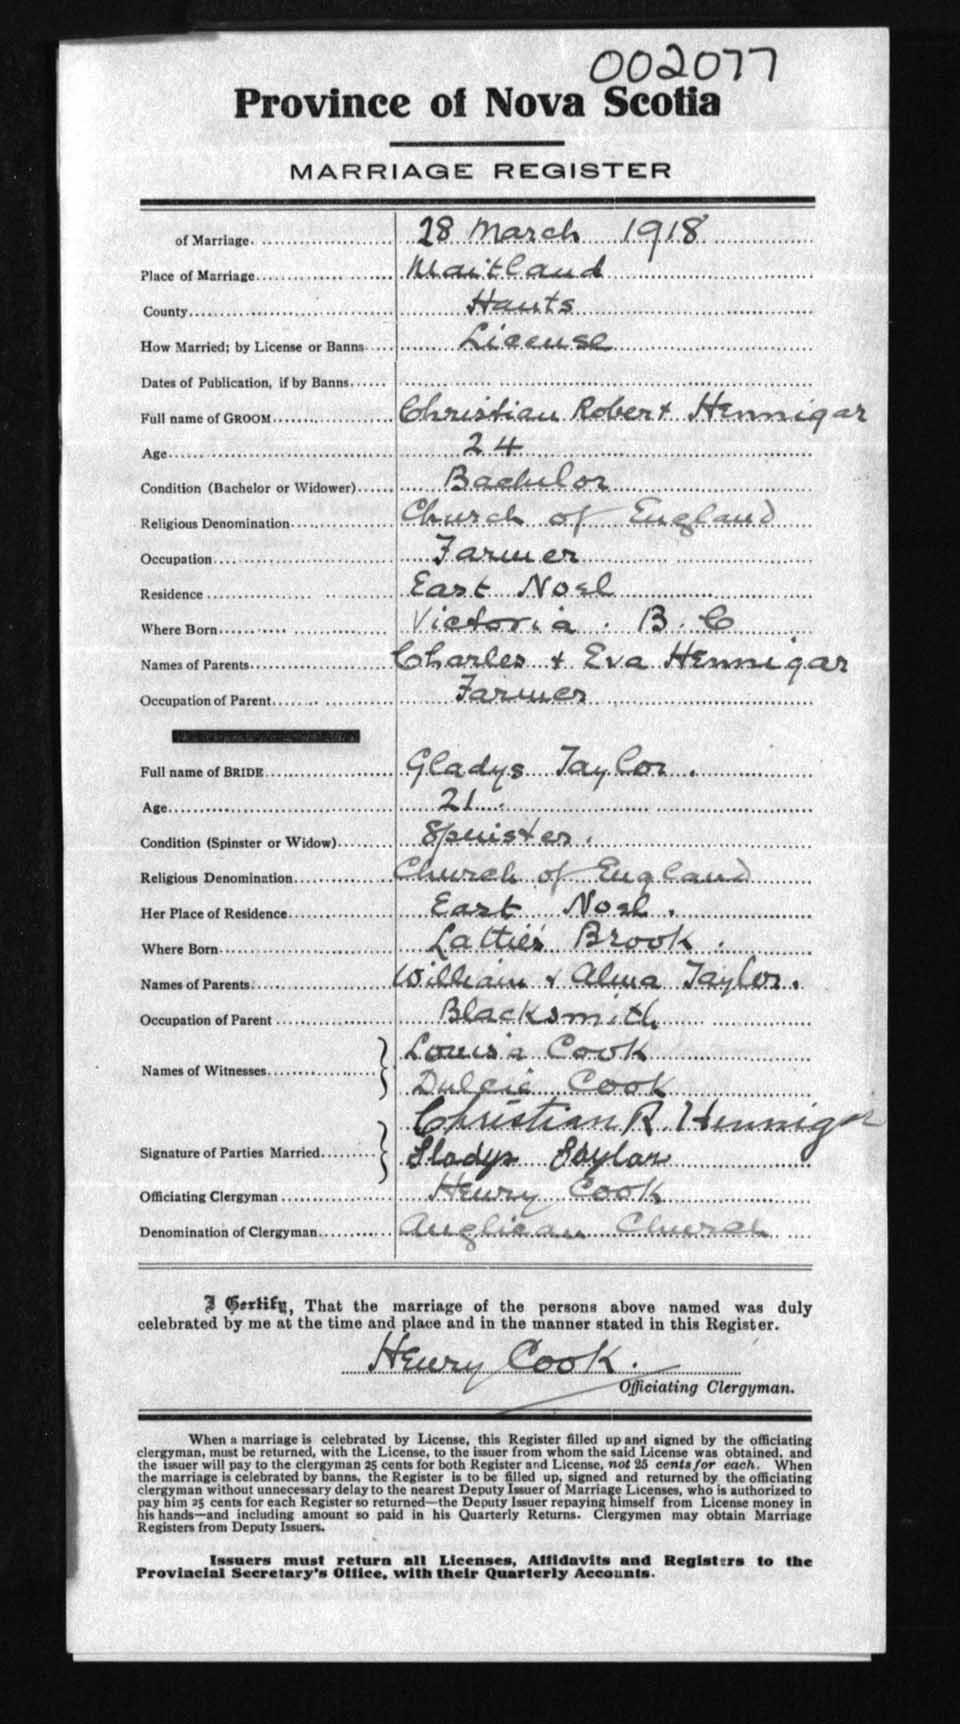 002077
Province of Nova Scotia
MARRIAGE REGISTER
of Marriage. 28 March 1918
Place of Marriage Maitland
County Hants
How Married; by License or Banns License
Dates of Publication, if by Banns
Full name of GROOM Christian Robert Hennigar
Age 24
Condition (Bachelor or Widower) Bachelor
Religious Denomination Church of England
Occupation Farmer
Residence East Noel
Where Born Victoria . B. C
Names of Parents Charles + Eva Hennigar
Occupation of Parent Farmer
Full name of BRIDE Gladys Taylor .
Age 21 .
Condition (Spinster or Widow) Spinster .
Religious Denomination Church of England
Her Place of Residence East Noel .
Where Born Lattie's Brook .
Names of Parents William + Alma Taylor .
Occupation of Parent Blacksmith
Names of Witnesses Louisa Cook
Dulcie Cook
Christian R. Hennigar
Signature of Parties Married Gladys Taylor
Officiating Clergyman Henry Cook
Denomination of Clergyman Anglican Church
I Certify, That the marriage of the persons above named was duly
celebrated by me at the time and place and in the manner stated in this Register.
Henry Cook.
Officiating Clergyman.
When a marriage is celebrated by License, this Register filled up and signed by the officiating
clergyman, must be returned, with the License, to the issuer from whom the said License was obtained, and
the issuer will pay to the clergyman 25 cents for both Register and License, not 25 cents for each. When
the marriage is celebrated by banns, the Register is to be filled up, signed and returned by the officiating
clergyman without unnecessary delay to the nearest Deputy Issuer of Marriage Licenses, who is authorized to
pay him 25 cents for each Register so returned—the Deputy Issuer repaying himself from License money in
his hands—and including amount so paid in his Quarterly Returns. Clergymen may obtain Marriage
Registers from Deputy Issuers.
Issuers must return all Licenses, Affidavits and Registers to the
Provincial Secretary's Office, with their Quarterly Accounts.